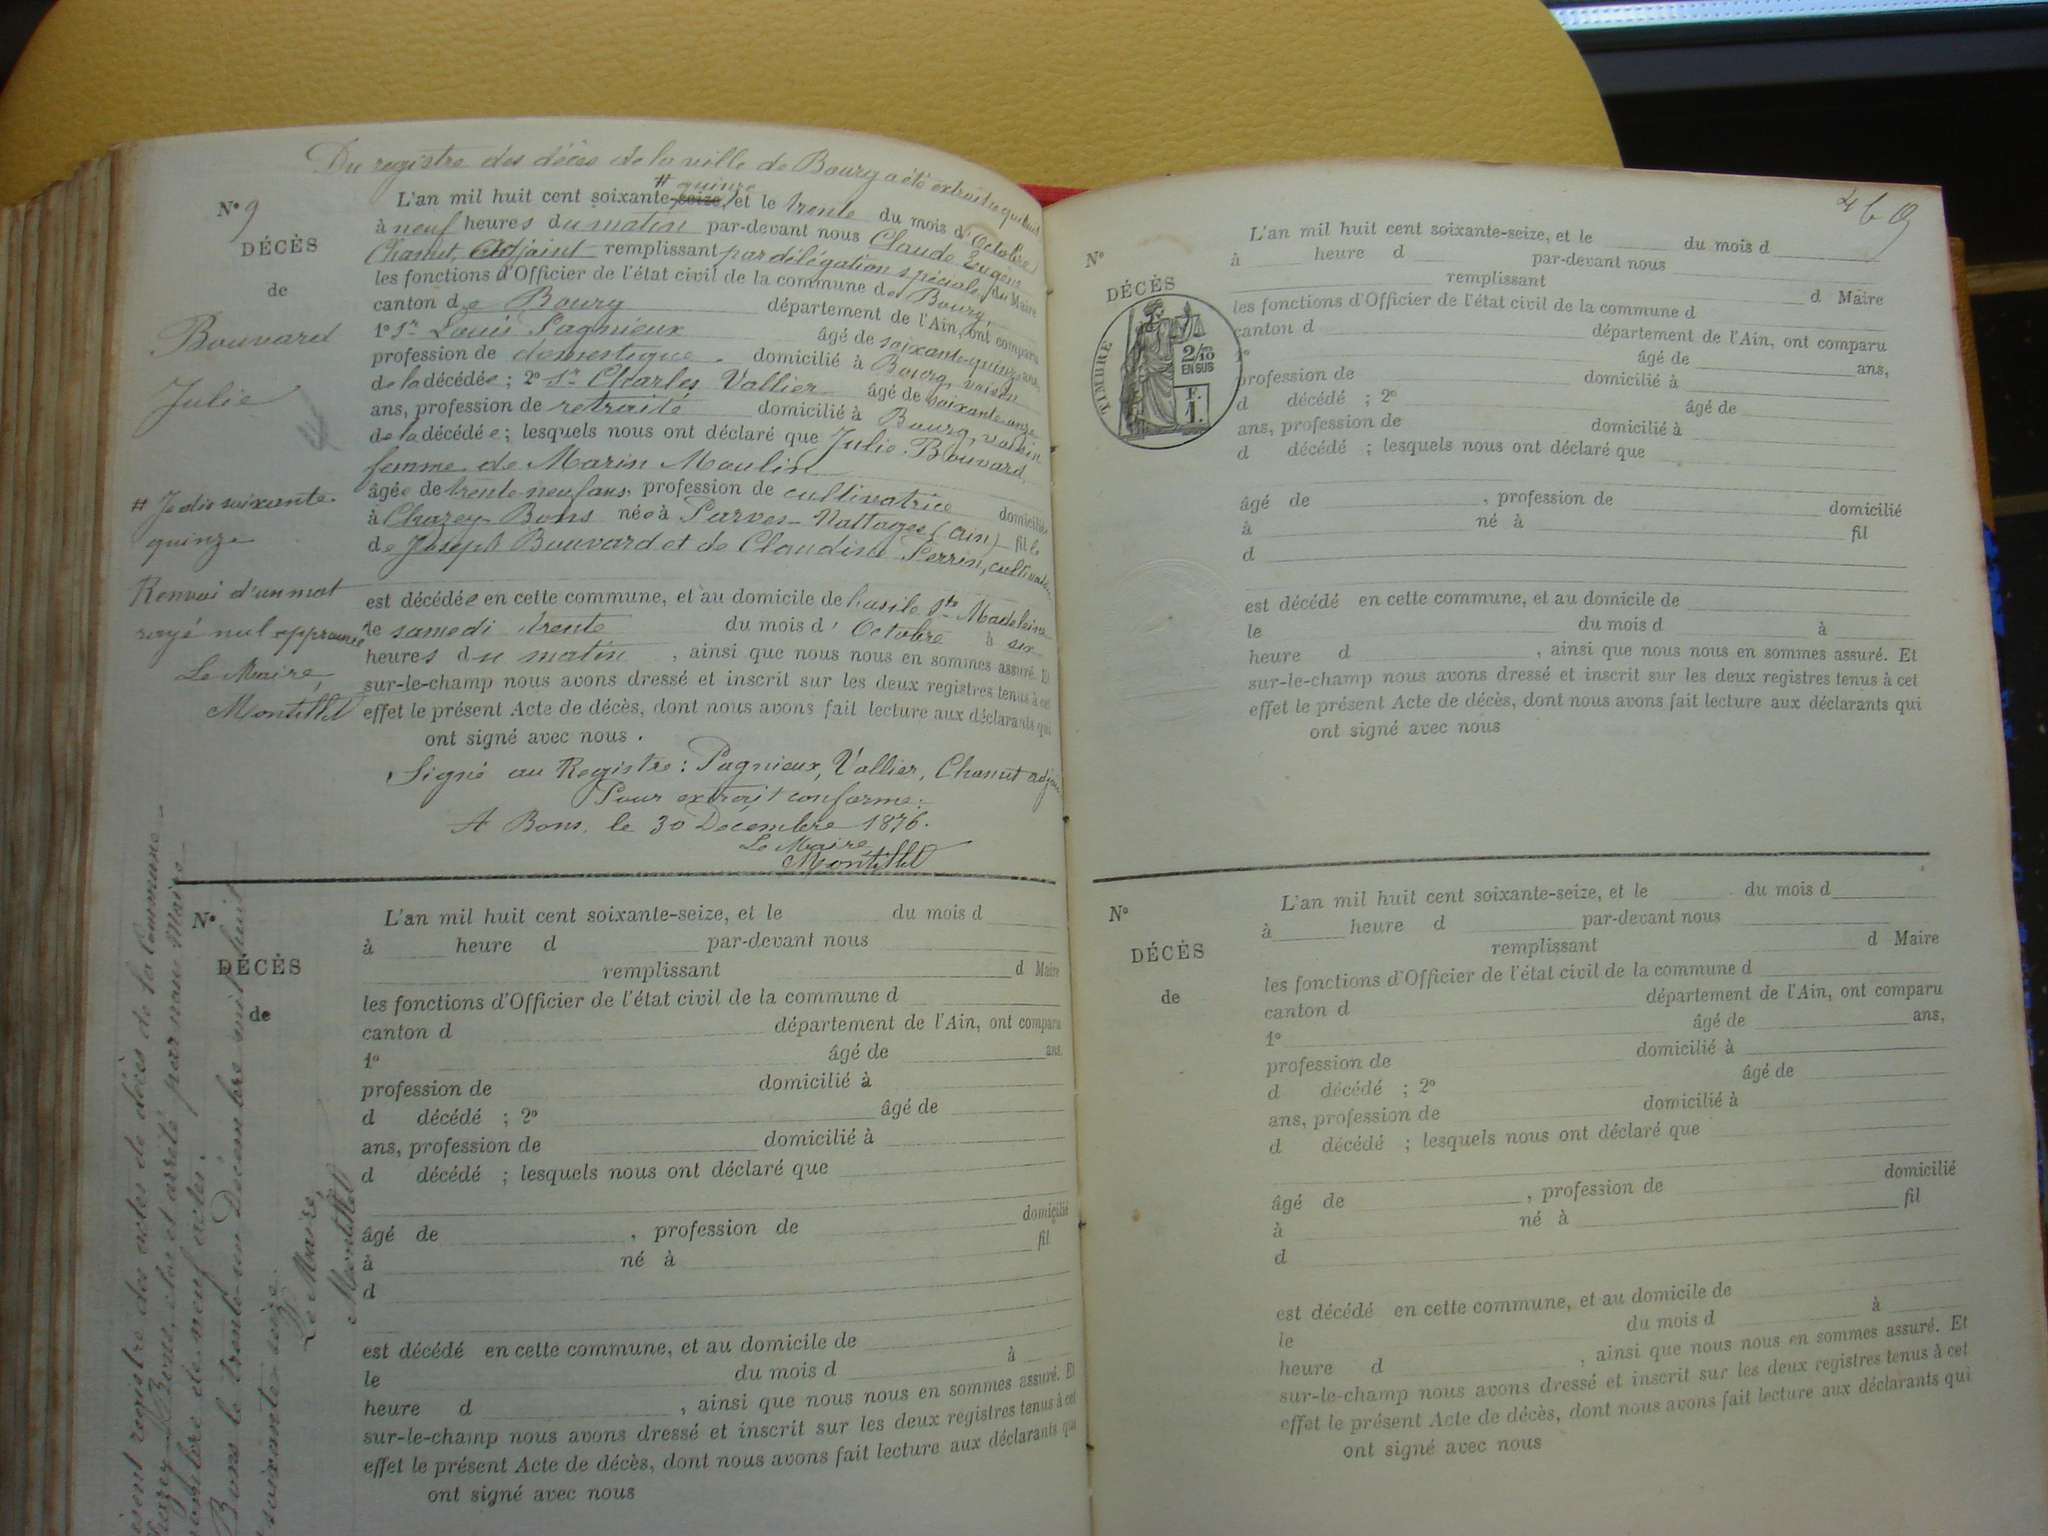 Du registre des décès de la ville de Bourg a été extrait ce qui suit
N° 9
DÉCÈS
de
Bouvard
Julie
# Je dis soixante
quinze
Renvoi d'un mot
rayé nul approuvé
Le Maire,
Montillet
# quinze
L'an mil huit cent soixante-seize, et le trente du mois d'Octobre
à neuf heures du matin par-devant nous Claude Eugène
Chanut, Adjoint remplissant par délégation spéciale du Maire
les fonctions d'Officier de l'état civil de la commune de Bourg
canton de Bourg département de l'Ain, ont comparu
1° Sr Louis Pagnieux âgé de soixante-quinze ans,
profession de domestique. domicilié à Bourg, voisin
de la décédée ; 2° Sr Charles Vallier âgé de soixante-onze
ans, profession de retraité domicilié à Bourg, voisin
de la décédée ; lesquels nous ont déclaré que Julie Bouvard,
femme de Marin Moulin
âgée de trente-neuf ans, profession de cultivatrice domiciliée
à Chazey-Bons née à Parves-Nattages (Ain) fille
de Joseph Bouvard et de Claudine Perrin, cultivateurs
est décédée en cette commune, et au domicile de hasile Ste Madeleine
le samedi trente du mois d'Octobre à six
heures du matin, ainsi que nous nous en sommes assuré. Et
sur-le-champ nous avons dressé et inscrit sur les deux registres tenus à cet
effet le présent Acte de décès, dont nous avons fait lecture aux déclarants qui
ont signé avec nous.
Signé au Registre : Pagnieux, Vallier, Chanut adjoint
Pour extrait conforme :
A Bons, le 30 Décembre 1876.
Le Maire,
Montillet
N°
DÉCÈS
de
L'an mil huit cent soixante-seize, et le du mois d
à heure d par-devant nous
remplissant d Maire
les fonctions d'Officier de l'état civil de la commune d
canton d département de l'Ain, ont comparu
1° âgé de ans,
profession de domicilié à
d décédé ; 2° âgé de
ans, profession de domicilié à
d décédé ; lesquels nous ont déclaré que
âgé de , profession de domicilié
à né à fil
d
est décédé en cette commune, et au domicile de
le du mois d à
heure d , ainsi que nous nous en sommes assuré. Et
sur-le-champ nous avons dressé et inscrit sur les deux registres tenus à cet
effet le présent Acte de décès, dont nous avons fait lecture aux déclarants qui
ont signé avec nous
registre des actes de décès de la Commune
Chazey-Bons, clos et arrêté par nous Maire
nombre de neuf actes.
Bons le trente-un Décembre mil huit
soixante-seize.
Le Maire,
Montillet
469
N°
DÉCÈS
TIMBRE
2/10
EN SUS
F.
1.
L'an mil huit cent soixante-seize, et le du mois d
à heure d par-devant nous
remplissant d Maire
les fonctions d'Officier de l'état civil de la commune d
canton d département de l'Ain, ont comparu
1° âgé de ans,
profession de domicilié à
d décédé ; 2° âgé de
ans, profession de domicilié à
d décédé ; lesquels nous ont déclaré que
âgé de , profession de domicilié
à né à fil
d
est décédé en cette commune, et au domicile de
le du mois d à
heure d , ainsi que nous nous en sommes assuré. Et
sur-le-champ nous avons dressé et inscrit sur les deux registres tenus à cet
effet le présent Acte de décès, dont nous avons fait lecture aux déclarants qui
ont signé avec nous
N°
DÉCÈS
de
L'an mil huit cent soixante-seize, et le du mois d
à heure d par-devant nous
remplissant d Maire
les fonctions d'Officier de l'état civil de la commune d
canton d département de l'Ain, ont comparu
1° âgé de ans,
profession de domicilié à
d décédé ; 2° âgé de
ans, profession de domicilié à
d décédé ; lesquels nous ont déclaré que
âgé de , profession de domicilié
à né à fil
d
est décédé en cette commune, et au domicile de
le du mois d à
heure d , ainsi que nous nous en sommes assuré. Et
sur-le-champ nous avons dressé et inscrit sur les deux registres tenus à cet
effet le présent Acte de décès, dont nous avons fait lecture aux déclarants qui
ont signé avec nous